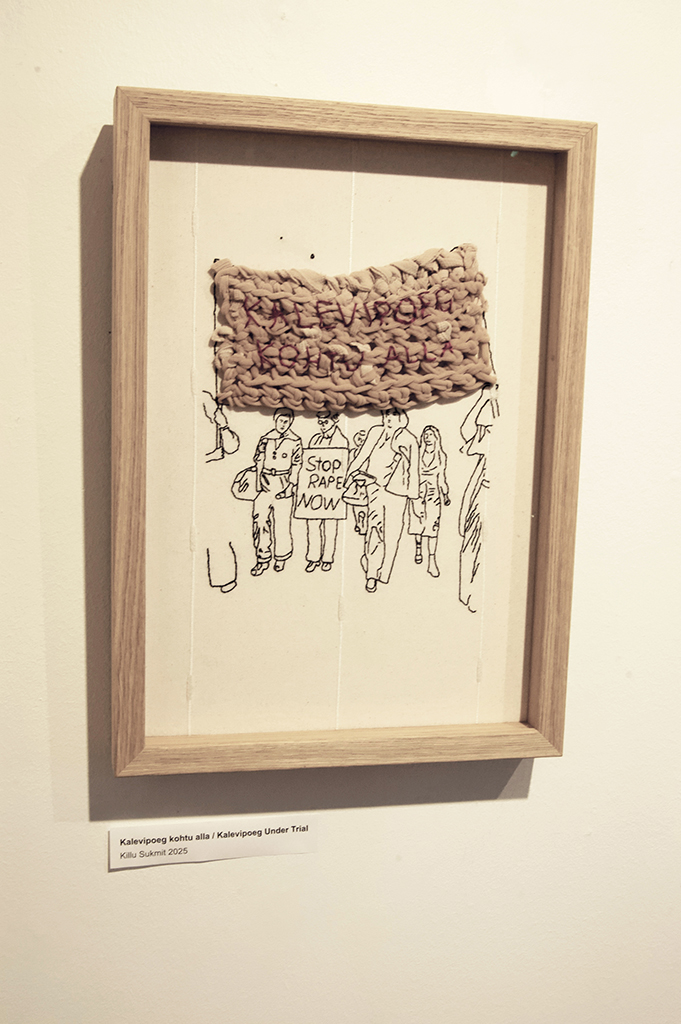 KALEVIPOEG
KOHTU ALLA
STOP
RAPE
NOW
Kalevipoeg kohtu alla / Kalevipoeg Under Trial
Killu Sukmit 2025